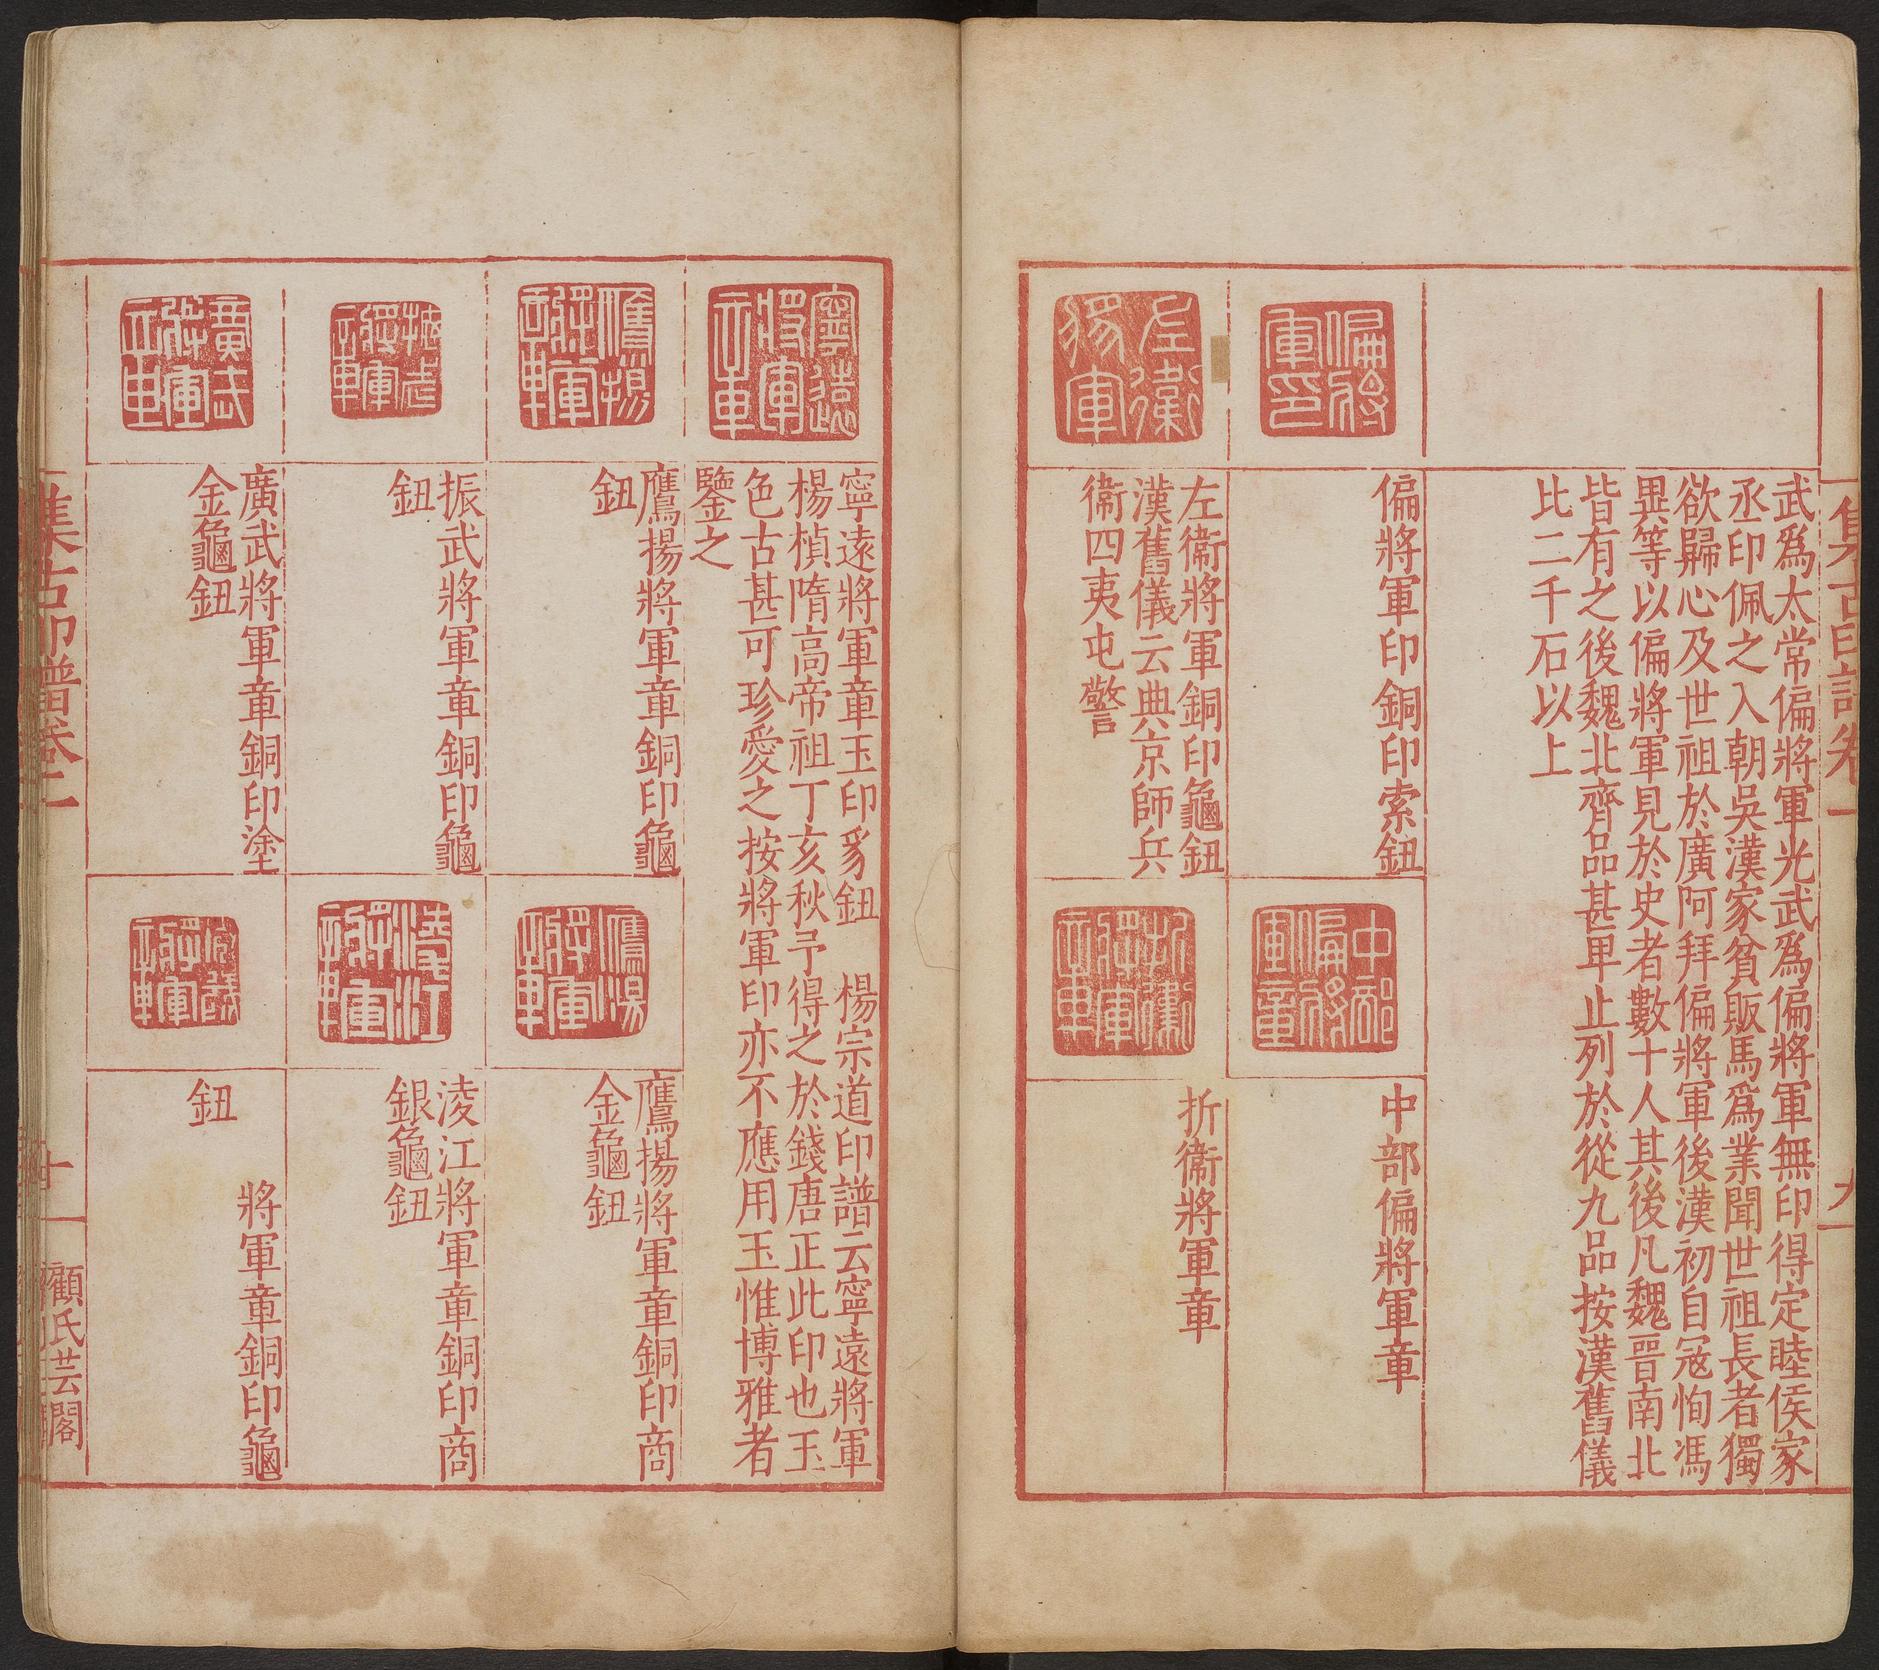 集古印譜卷一
九
武爲太常偏將軍光武爲偏將軍無印得定睦侯家
丞印佩之入朝吳漢家貧販馬爲業聞世祖長者獨
欲歸心及世祖於廣阿拜偏將軍後漢初自寇恂馮
異等以偏將軍見於史者數十人其後凡魏晉南北
皆有之後魏北齊品甚卑止列於從九品按漢舊儀
比二千石以上
偏將軍印
偏將軍印銅印索鈕
中部偏將軍章
中部偏將軍章
左衞將軍
左衞將軍銅印龜鈕
漢舊儀云典京師兵
衞四夷屯警
折衝將軍章
折衞將軍章
寧遠將軍章
寧遠將軍章玉印豸鈕 楊宗道印譜云寧遠將軍
楊楨隋高帝祖丁亥秋予得之於錢唐正此印也玉
色古甚可珍愛之按將軍印亦不應用玉惟博雅者
鑒之
鷹揚將軍章
鷹揚將軍章銅印龜
鈕
鷹揚將軍章
鷹揚將軍章銅印商
金龜鈕
振武將軍章
振武將軍章銅印龜
鈕
淩江將軍章
淩江將軍章銅印商
銀龜鈕
廣武將軍章
廣武將軍章銅印塗
金龜鈕
將軍章
將軍章銅印龜
鈕
集古印譜卷一
十
顧氏芸閣